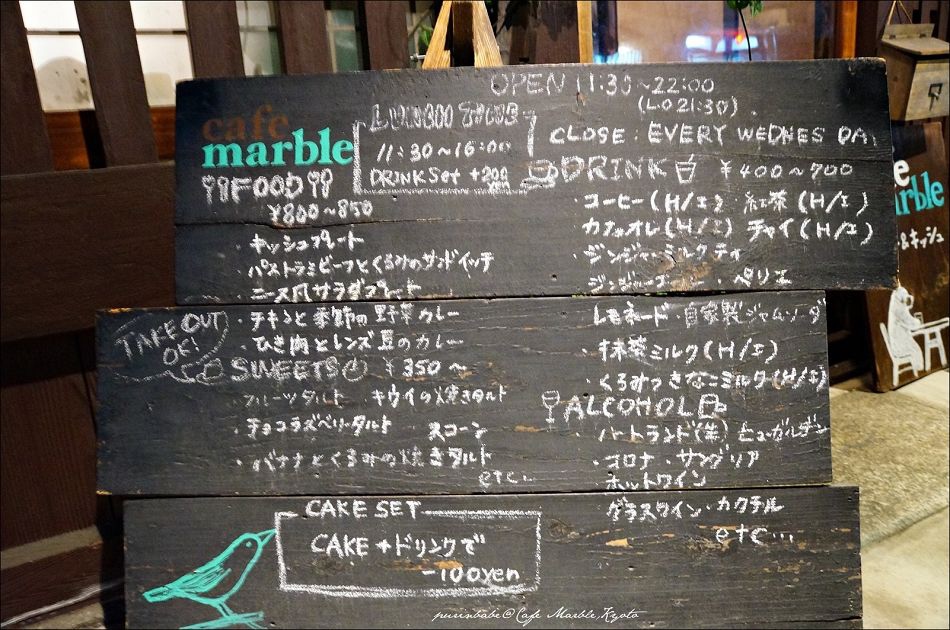 OPEN 11:30~22:00
(L.O 21:30)
CLOSE : EVERY WEDNES DAY
cafe
marble
LUNCH TIME
11:30~16:00
DRINK set +200 yen
FOOD
¥800~850
・キッシュプレート
・パストラミビーフとくるみのサンドイッチ
・ニース風サラダプレート
・チキンと季節の野草カレー
・ひき肉とレンズ豆のカレー
TAKE OUT
OK!
SWEETS ¥350~
フルーツタルト キウイの焼きタルト
・チョコラズベリータルト スコーン
・バナナとくるみの焼きタルト
etc...
DRINK ¥400~700
・コーヒー(H/I)・紅茶(H/I)
カフェオレ(H/I) チャイ(H/I)
・ジンジャーミルクティ
・ジンジャーエール・ペリエ
レモネード・自家製ジャムソーダ
・抹茶ミルク(H/I)
・くるみっきなこミルク(H/I)
ALCOHOL
・ハートランド(生) ヒューガルデン
・コロナ・サングリア
・ホットワイン
グラスワイン・カクテル
etc...
CAKE SET
CAKE+ドリンクで
-100yen
rble
&キッシュ
purinbabe@Cafe Marble,Kyoto